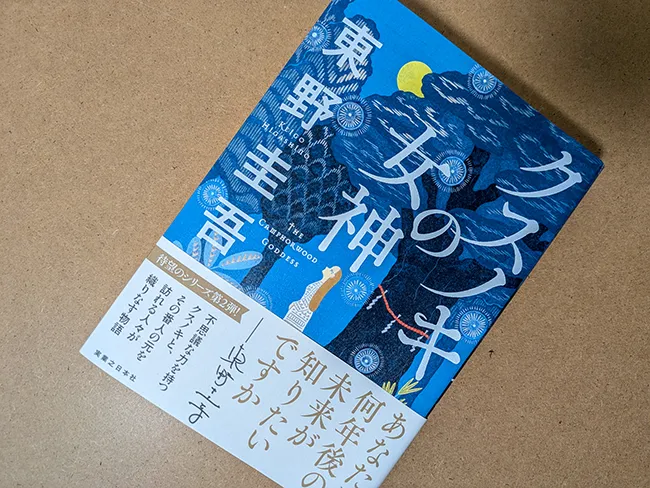 クスノキ
の女神
東野圭吾
KEIGO
HIGASHINO
THE
CAMPHORWOOD
GODDESS
あなた
何年後の
未来が
知りたい
ですか
―東野圭吾
待望のシリーズ第2弾!
不思議な力を持つ
クスノキと、
その番人の元を
訪れる人々が
織りなす物語
実業之日本社